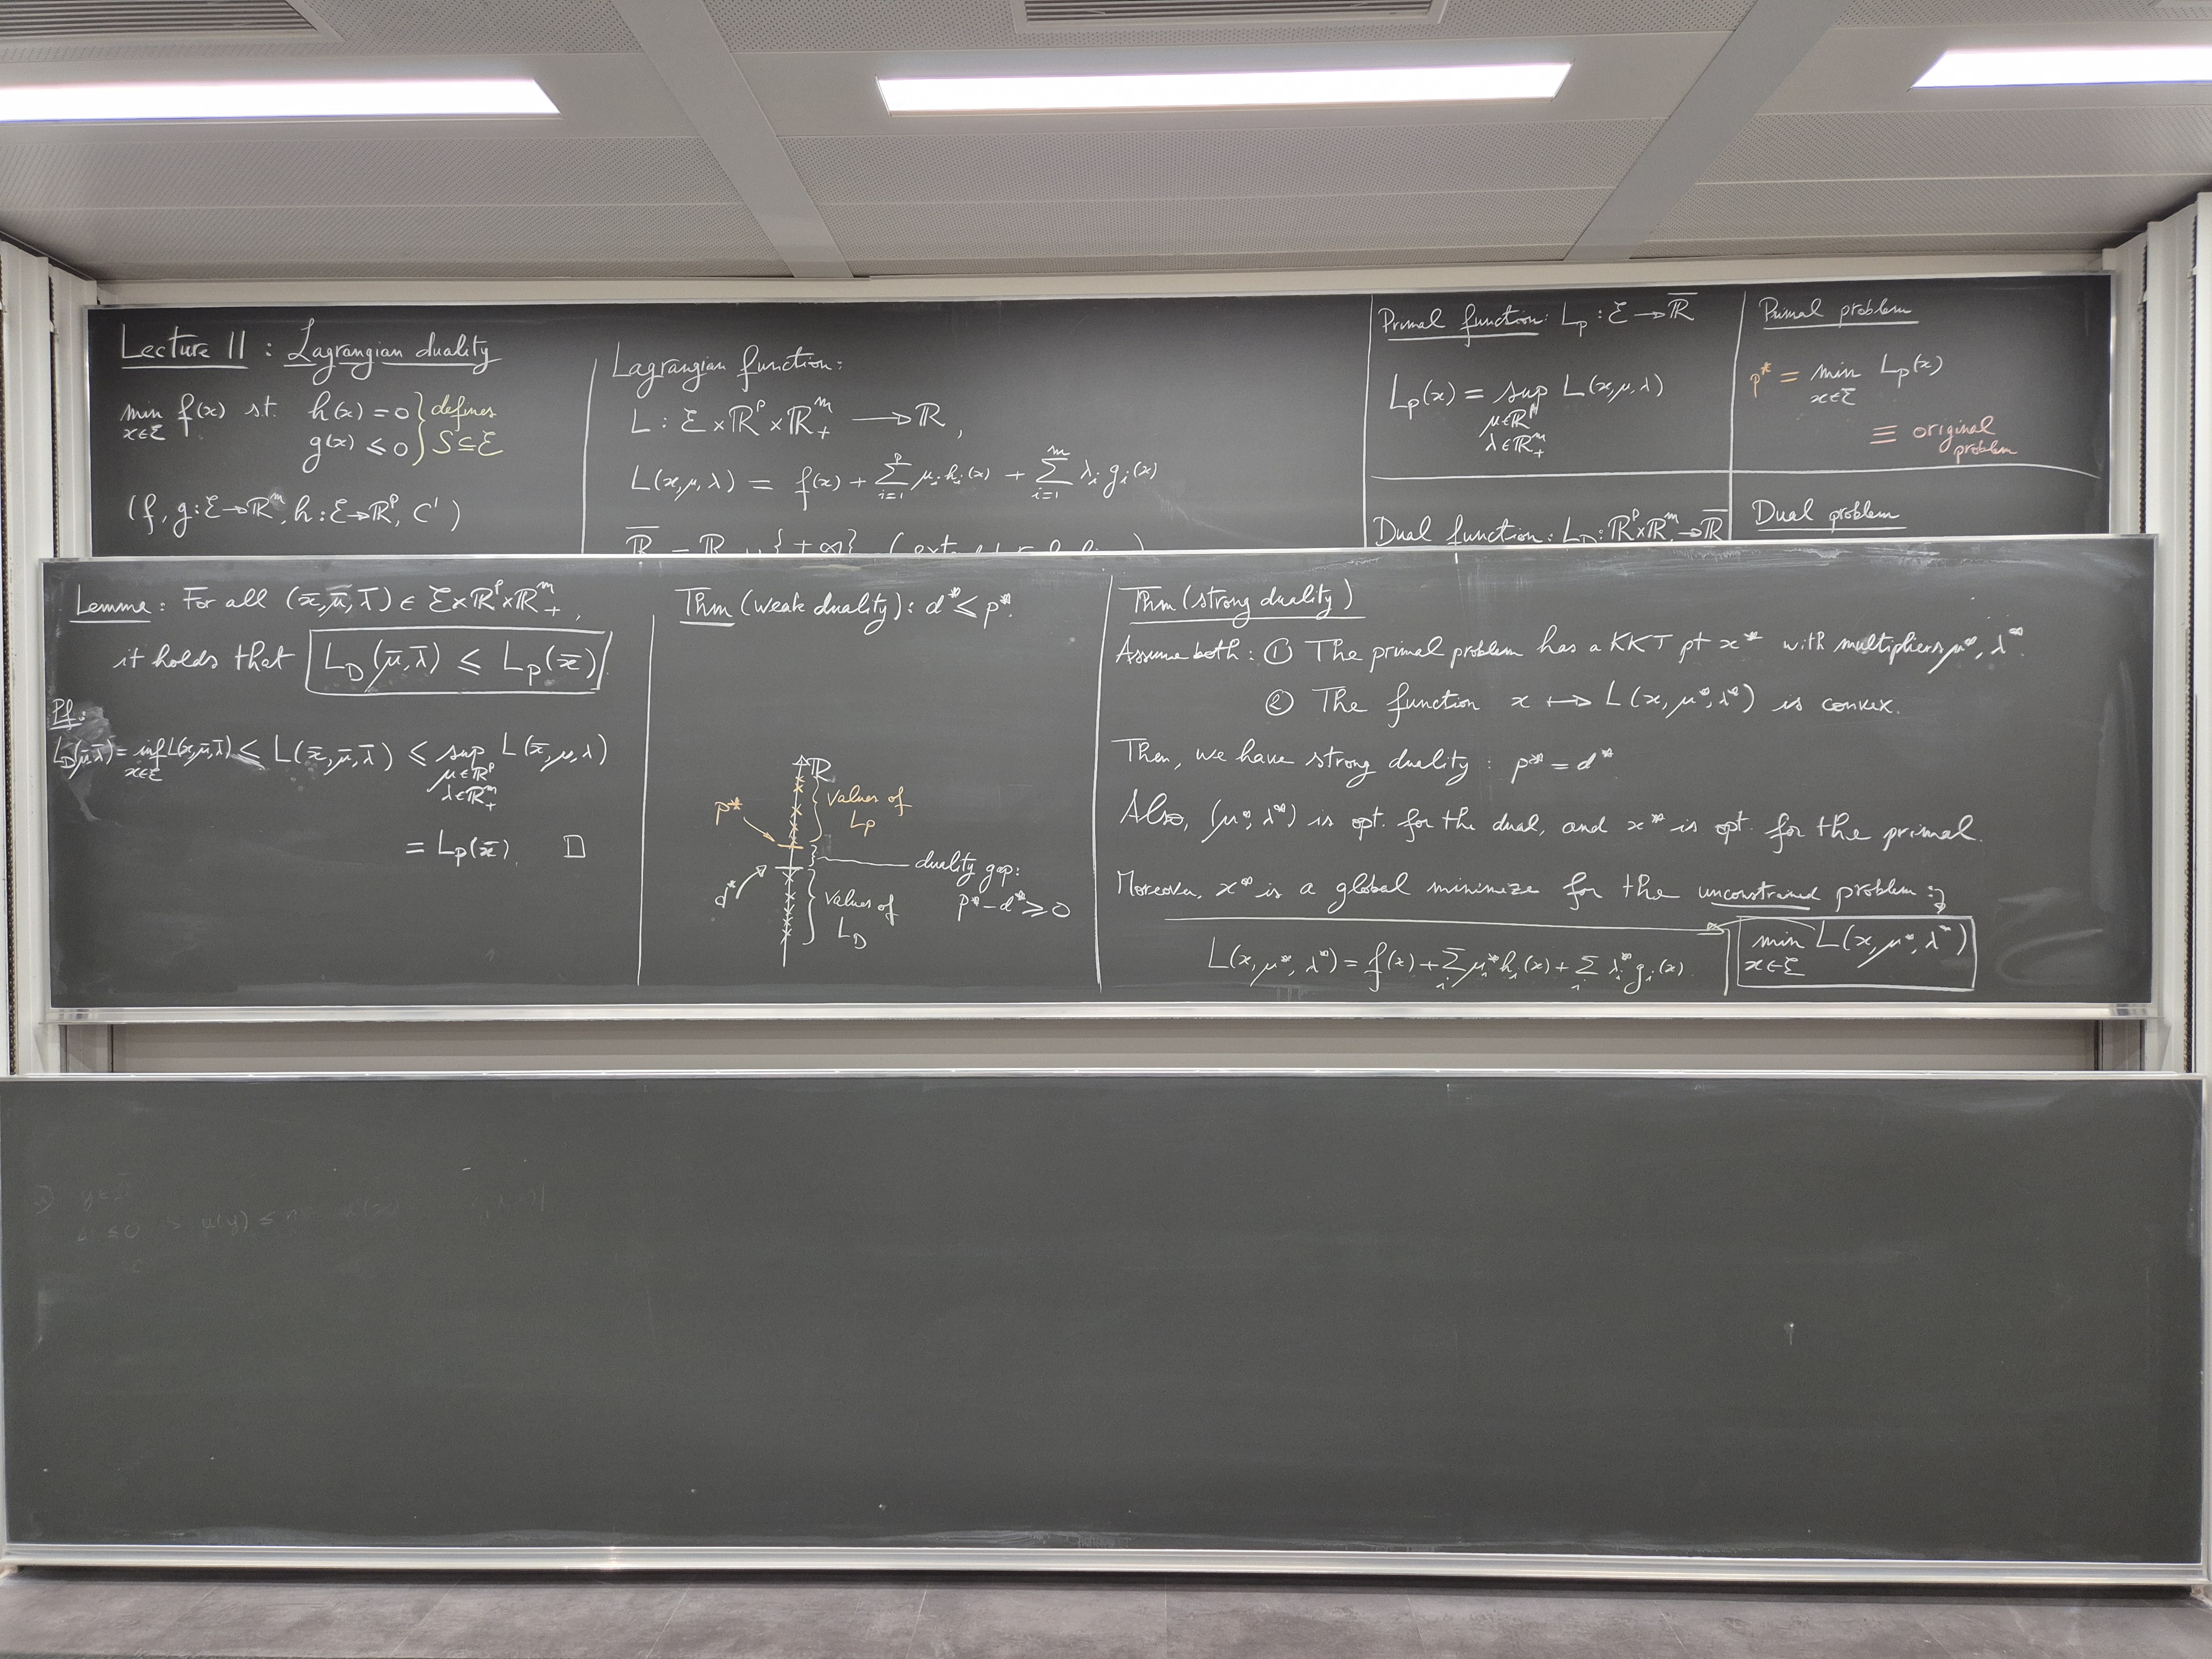 Lecture 11 : Lagrangian duality
min f(x) s.t. h(x) = 0 } defines
x∈ℰ g(x) ≤ 0 } S ⊆ ℰ
(f, g: ℰ → ℝ^m, h: ℰ → ℝ^p, C¹)
Lagrangian function:
L : ℰ × ℝ^p × ℝ^m_+ → ℝ,
L(x, μ, λ) = f(x) + ∑_{i=1}^p μ_i h_i(x) + ∑_{i=1}^m λ_i g_i(x)
Primal function: L_P : ℰ → ℝ̅
L_P(x) = sup L(x, μ, λ)
μ∈ℝ^p
λ∈ℝ^m_+
Primal problem
p* = min L_P(x)
x∈ℰ
≡ original
problem
Dual function: L_D : ℝ^p × ℝ^m → ℝ̅
Dual problem
Lemma: For all (x̄, μ̄, λ̄) ∈ ℰ × ℝ^p × ℝ^m_+,
it holds that L_D(μ̄, λ̄) ≤ L_P(x̄)
Pf:
L_D(μ̄, λ̄) = inf L(x, μ̄, λ̄) ≤ L(x̄, μ̄, λ̄) ≤ sup L(x̄, μ, λ)
x∈ℰ μ∈ℝ^p
λ∈ℝ^m_+
= L_P(x̄). □
Thm (weak duality): d* ≤ p*.
ℝ
p* values of
L_P
duality gap:
p* − d* ≥ 0
d* values of
L_D
Thm (strong duality)
Assume both: ① The primal problem has a KKT pt x* with multipliers μ*, λ*.
② The function x ↦ L(x, μ*, λ*) is convex.
Then, we have strong duality: p* = d*
Also, (μ*, λ*) is opt. for the dual, and x* is opt. for the primal.
Moreover, x* is a global minimize for the unconstrained problem:
min L(x, μ*, λ*)
x∈ℰ
L(x, μ*, λ*) = f(x) + ∑_i μ_i* h_i(x) + ∑_i λ_i* g_i(x)